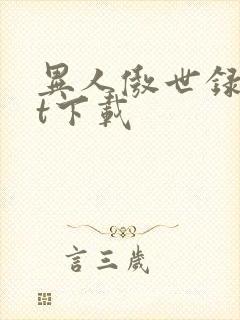 異人傲世録
t下載
言三歲